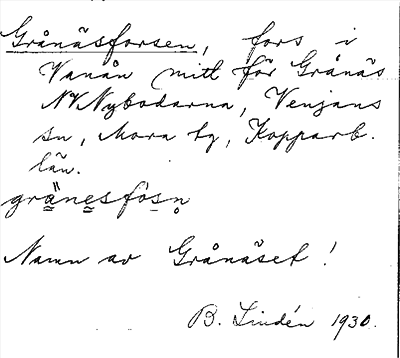 Grånäsforsen, fors i
Vanån mitt för Grånäs
NV Nybodarna, Venjans
sn, Mora tg, Kopparb.
län.
Namn av Grånäset!
B. Lindén 1930.